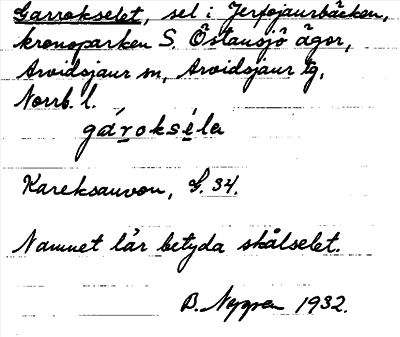 Garrokselet, sel i Jerfojaurbäcken,
kronoparken S. Östansjö ägor,
Arvidsjaur sn, Arvidsjaur tg,
Norrb. l.
gároksela
Kareksauvon, G. 34.
Namnet lär betyda skålselet.
B. Nygren 1932.